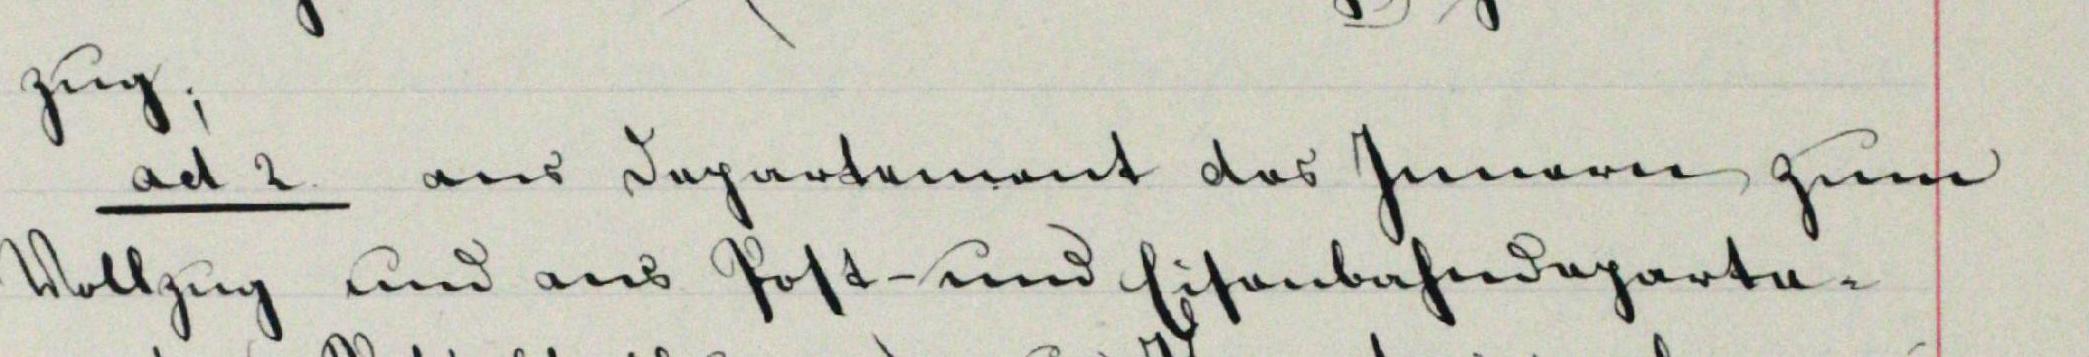 zug;
ad 2. ans Departement des Innern zum
Vollzug und ans Post- und Eisenbahndeparte-